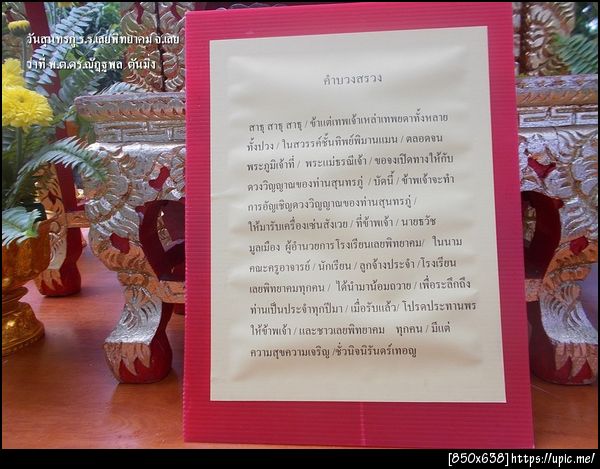 วันสุนทรภู่ ร.ร.เลยพิทยาคม จ.เลย
ว่าที่ พ.ต.ดร.ณัฏฐพล ตันมิ่ง
คำบวงสรวง
สาธุ สาธุ สาธุ / ข้าแต่เทพเจ้าเหล่าเทพยดาทั้งหลาย
ทั้งปวง / ในสวรรค์ชั้นทิพย์พิมานแมน / ตลอดจน
พระภูมิเจ้าที่ / พระแม่ธรณีเจ้า / ขอจงเปิดทางให้กับ
ดวงวิญญาณของท่านสุนทรภู่ / บัดนี้ / ข้าพเจ้าจะทำ
การอัญเชิญดวงวิญญาณของท่านสุนทรภู่ /
ให้มารับเครื่องเซ่นสังเวย / ที่ข้าพเจ้า / นายธวัช
มูลเมือง ผู้อำนวยการโรงเรียนเลยพิทยาคม/ ในนาม
คณะครูอาจารย์ / นักเรียน / ลูกจ้างประจำ /โรงเรียน
เลยพิทยาคมทุกคน / ได้นำมาน้อมถวาย / เพื่อระลึกถึง
ท่านเป็นประจำทุกปีมา / เมื่อรับแล้ว/ โปรดประทานพร
ให้ข้าพเจ้า / และชาวเลยพิทยาคม ทุกคน / มีแต่
ความสุขความเจริญ /ชั่วนิจนิรันดร์เทอญ
[850x638] https://upic.me/